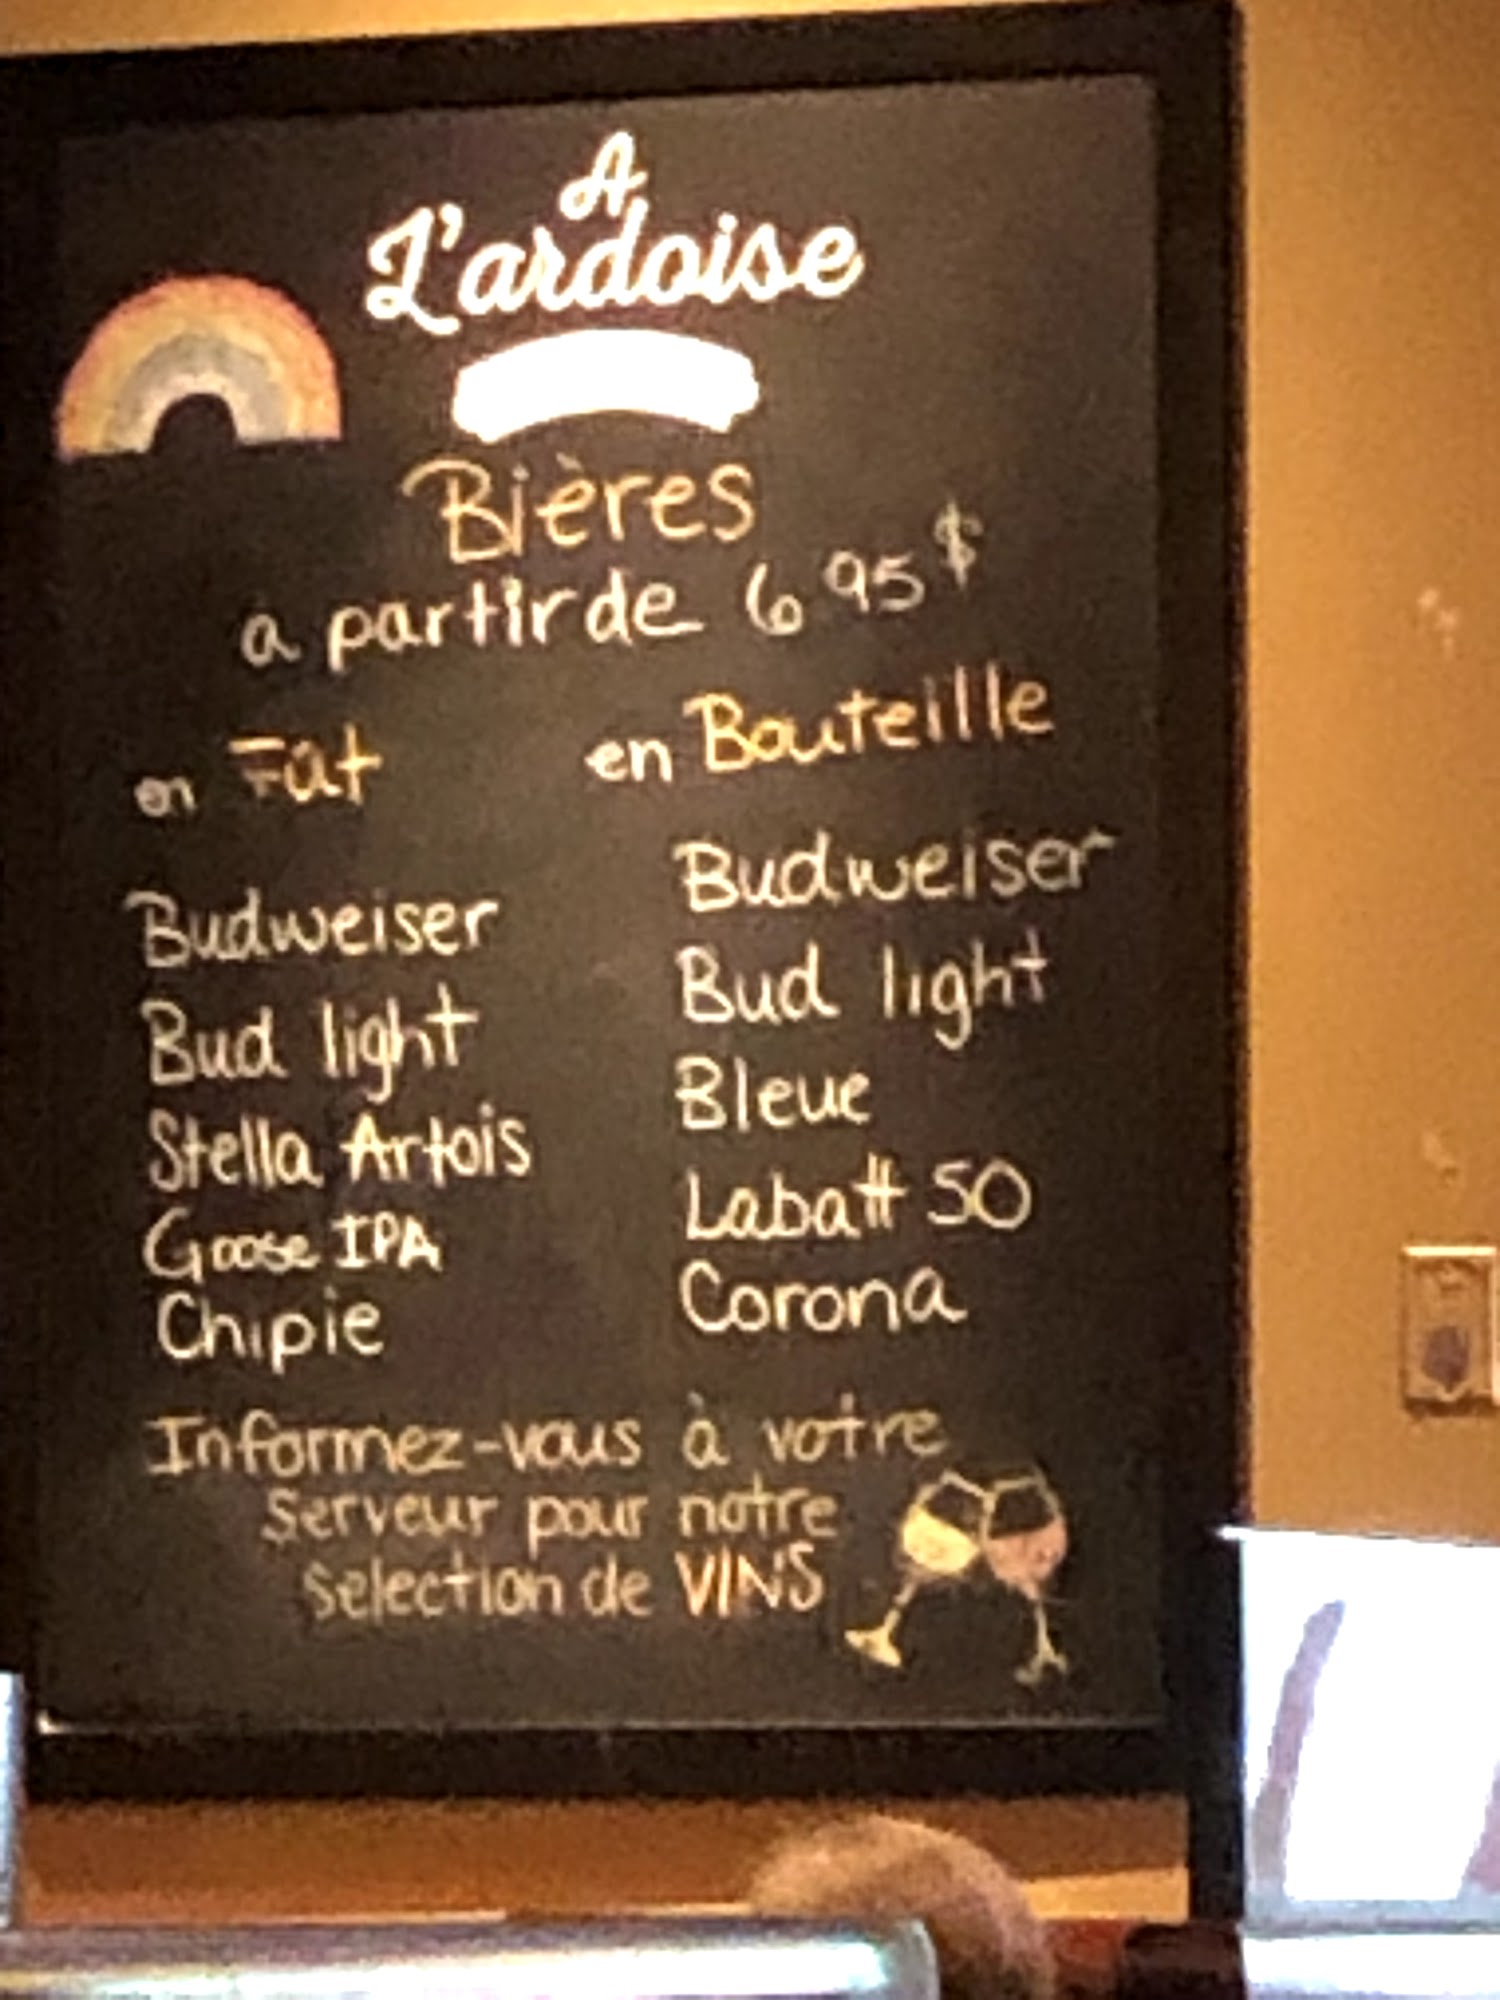 A
L'ardoise
Bières
a partir de 6 95 $
en Fût
en Bouteille
Budweiser
Bud light
Stella Artois
Goose IPA
Chipie
Budweiser
Bud light
Bleue
Labatt 50
Corona
Informez-vous à votre
Serveur pour notre
selection de VINS